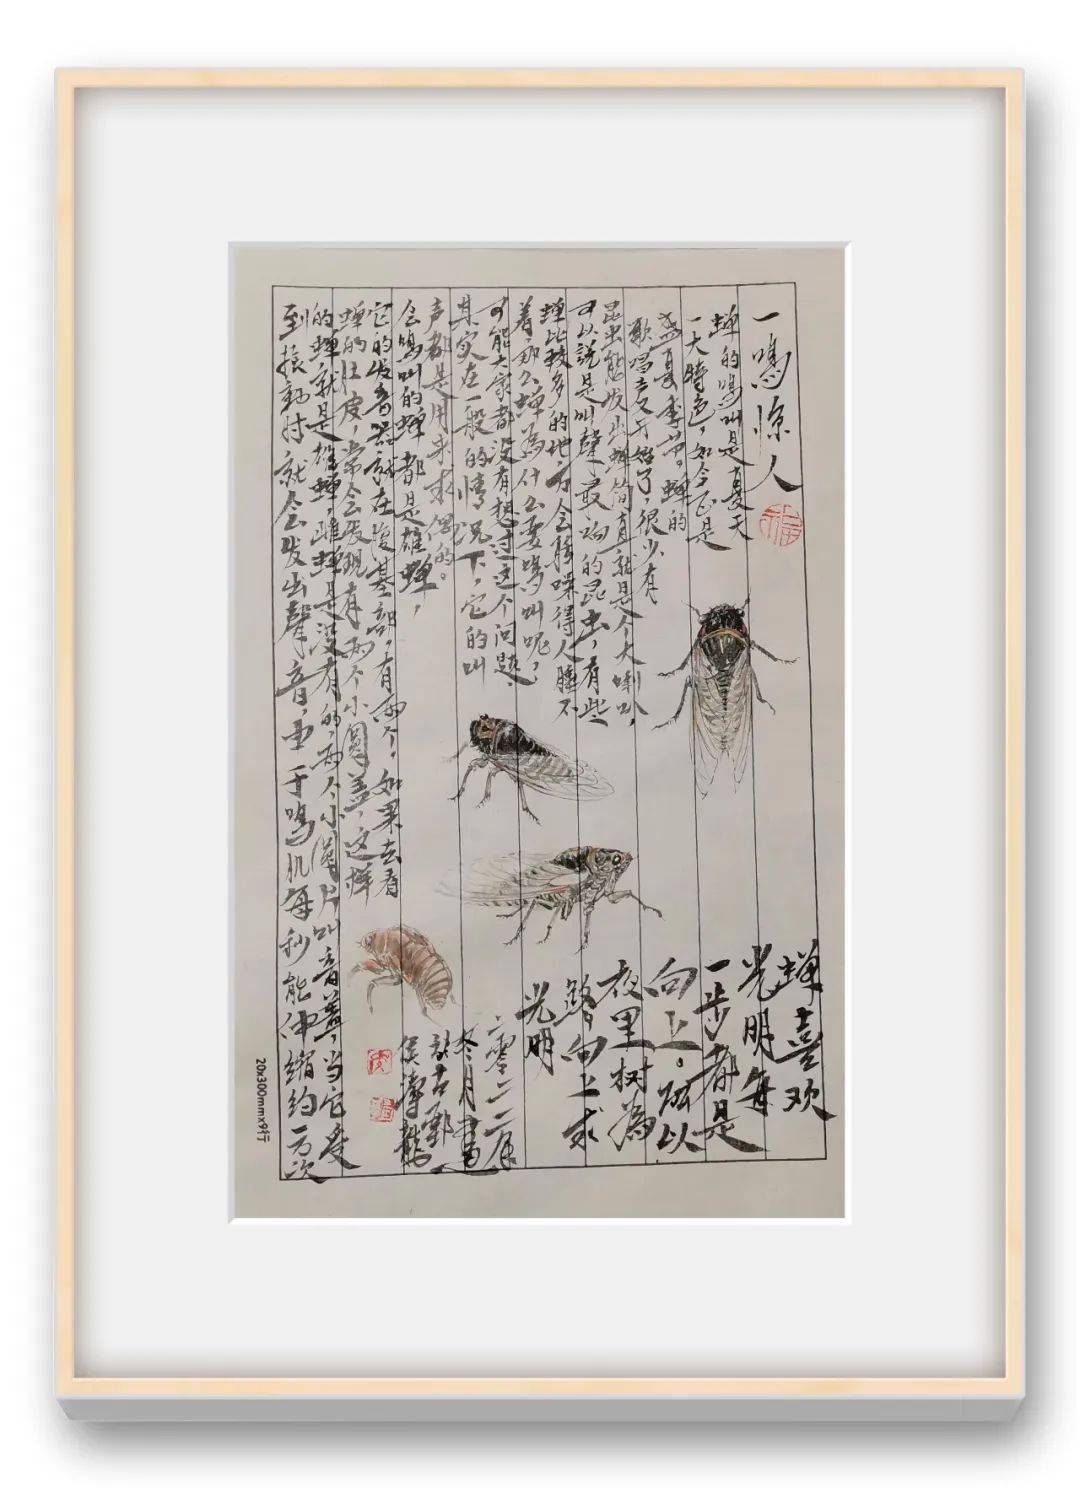 一鳴惊人
蝉的鸣叫是夏天
一大特色，如今正是
盛夏季节。蝉的
歌唱声又开始了，很少有
昆虫能发出蝉简直就是个大喇叭，
可以说是叫聲最响的昆虫，有些
蝉比较多的地方会噪得人睡不
着那么蝉為什么要鸣叫呢，
可能大家都没有想过这个问题，
其实在一般的情况下，它的叫
声都是用来求偶的。
会鸣叫的蝉都是雄蝉，
它的发音器就在復基部，有两个，如果去看
蝉的肚皮，常会发现有两个小圆盖，这样
的蝉就是雄蝉，雌蝉是没有的，两个小圆片叫音蓋，当它受
到振动时就会发出聲音，至于鸣肌每秒能伸缩约一万次
蝉喜欢
光明每
一步都是
向上。所以
夜里树為
向上求
光明
二零二二年
冬月書
於古鄴
侯濤龍
20x300mmx9行